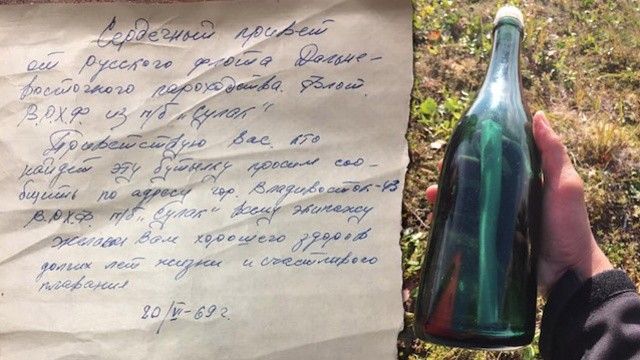 Сердечный привет
от русского флота Дальне-
восточного пароходства. Флот.
В.Р.Х.Ф из п/б „Сулак"
Приветствую Вас, кто
найдет эту бутылку просим соо-
бщить по адресу гор. Владивосток-43
В.Р.Х.Ф. п/б „Сулак" всему экипажу
Желаем Вам хорошего здоров
долгих лет жизни и счастливого
плавания
20/VI-69г.